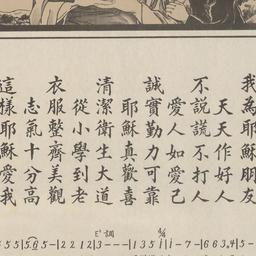 我為耶穌朋友
天天作好人
不說謊不打人
愛人如愛己
誠實勤力可靠
耶穌真歡喜
清潔衛生大道
從小學到老
衣服整齊美觀
志氣十分高
這樣耶穌愛我
E♭調 4/4
5 5 | 5. 6 5 - | 2 2 1 2 | 3 - - - | 1 3 5 i | i - 7 - | 6 6 3. 4 | 5 -